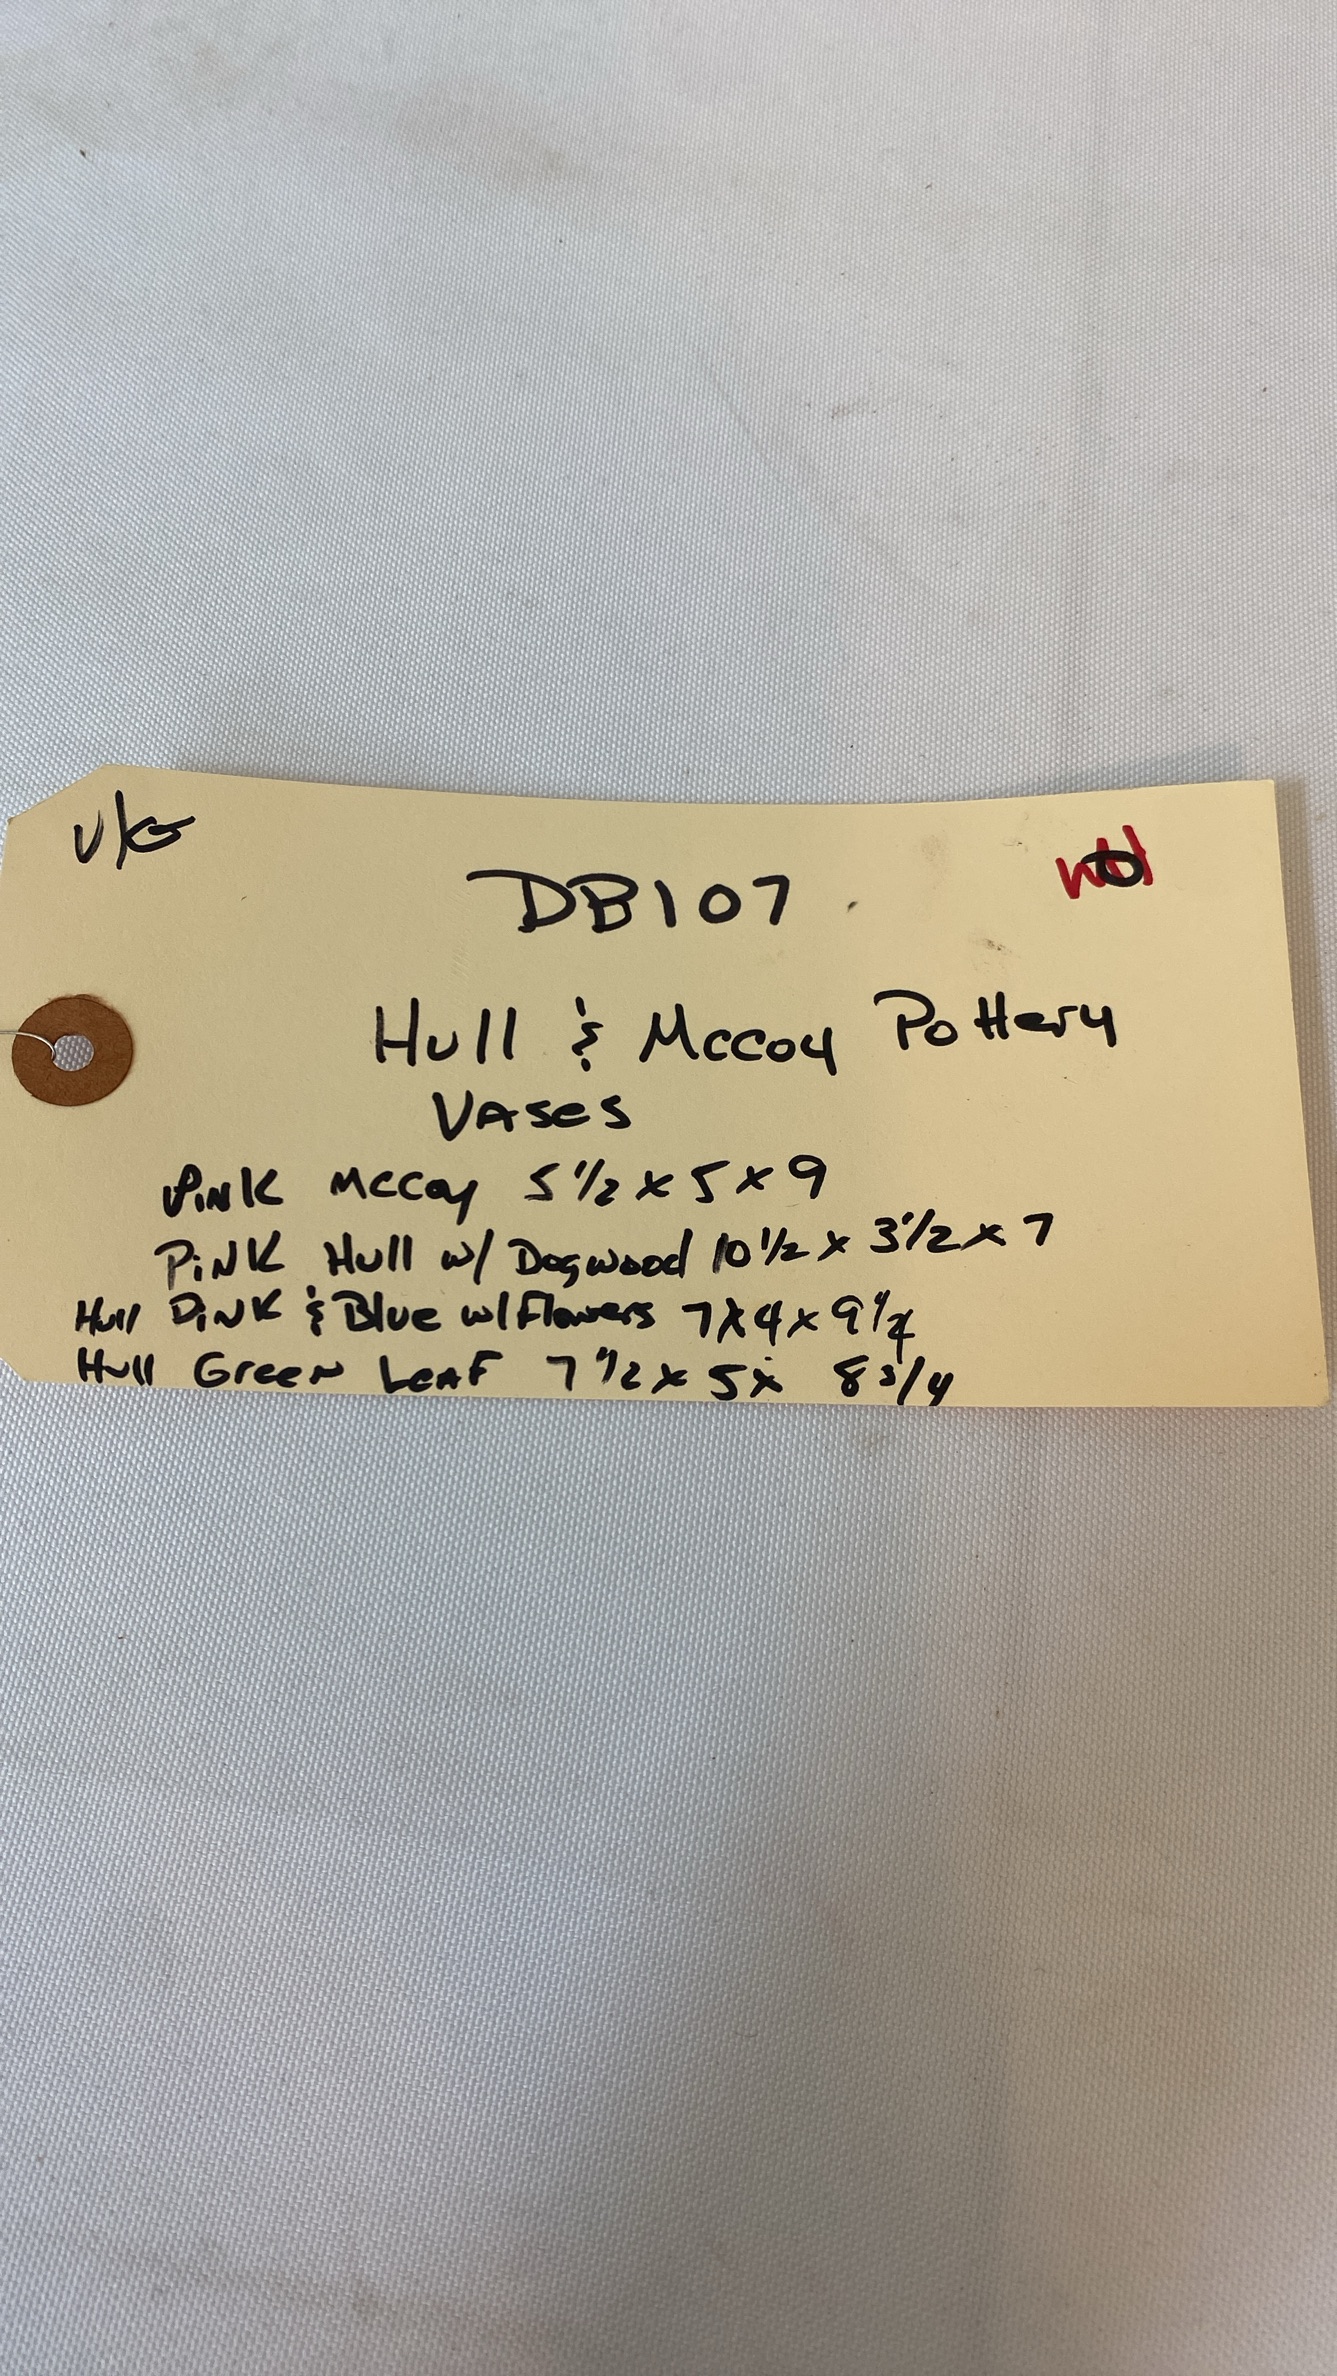 V/G
DB107
Hull & McCoy Pottery
Vases
Pink McCoy 5 1/2 x 5 x 9
Pink Hull w/ Dogwood 10 1/2 x 3 1/2 x 7
Hull Pink & Blue w/ Flowers 7 x 4 x 9 1/4
Hull Green Leaf 7 1/2 x 5 x 8 3/4